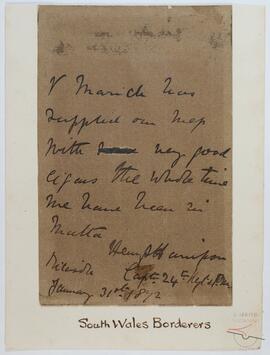 V Marich has
supplied our Mess
with very good
cigars the whole time
we have been in
Malta
Capt 24th Regt
January 31st 1872
South Wales Borderers